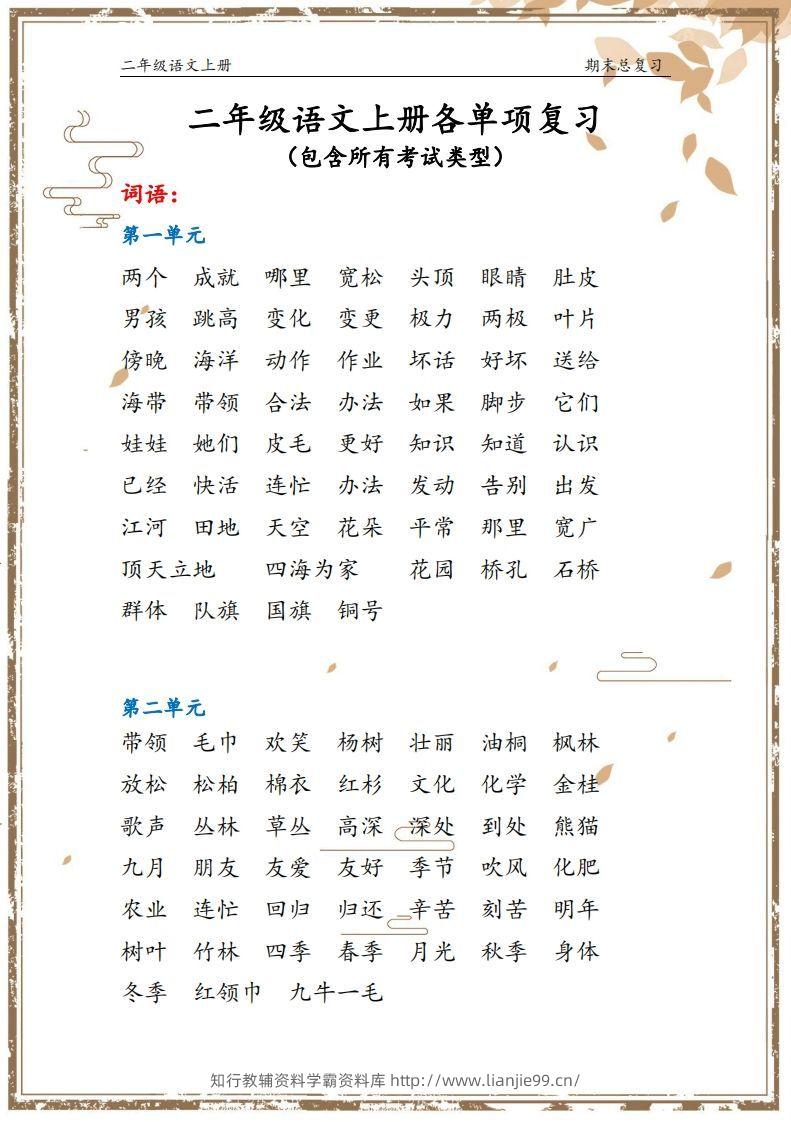 二年级语文上册 期末总复习
二年级语文上册各单项复习
（包含所有考试类型）
词语：
第一单元
两个 成就 哪里 宽松 头顶 眼睛 肚皮
男孩 跳高 变化 变更 极力 两极 叶片
傍晚 海洋 动作 作业 坏话 好坏 送给
海带 带领 合法 办法 如果 脚步 它们
娃娃 她们 皮毛 更好 知识 知道 认识
已经 快活 连忙 办法 发动 告别 出发
江河 田地 天空 花朵 平常 那里 宽广
顶天立地 四海为家 花园 桥孔 石桥
群体 队旗 国旗 铜号
第二单元
带领 毛巾 欢笑 杨树 壮丽 油桐 枫林
放松 松柏 棉衣 红杉 文化 化学 金桂
歌声 丛林 草丛 高深 深处 到处 熊猫
九月 朋友 友爱 友好 季节 吹风 化肥
农业 连忙 回归 归还 辛苦 刻苦 明年
树叶 竹林 四季 春季 月光 秋季 身体
冬季 红领巾 九牛一毛
知行教辅资料学霸资料库 http://www.lianjie99.cn/